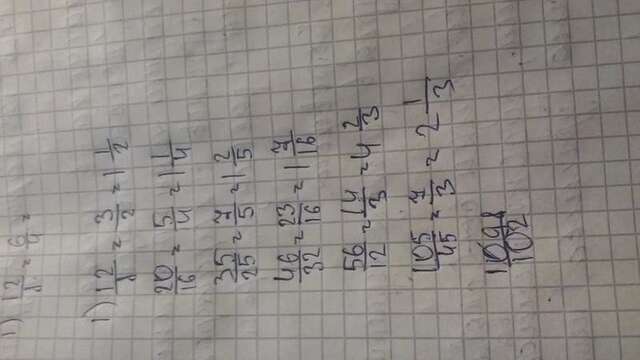 1) 12/8 = 6/4 =
1) 12/8 = 3/2 = 1 1/2
20/16 = 5/4 = 1 1/4
35/25 = 7/5 = 1 2/5
46/32 = 23/16 = 1 7/16
56/12 = 14/3 = 4 2/3
105/45 = 7/3 = 2 1/3
1098/102